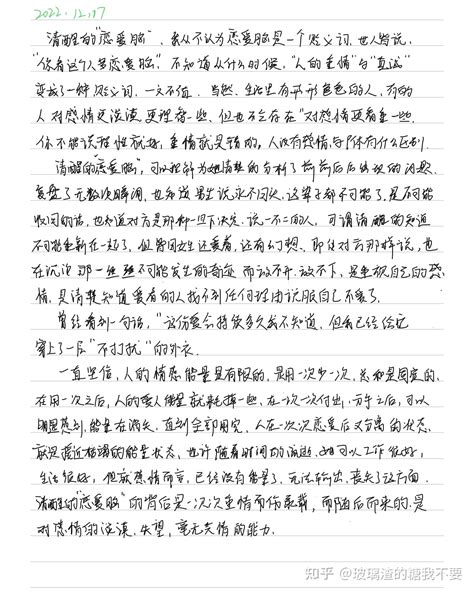 2022.12.17
清醒的"恋爱脑",我从不认为恋爱脑是一个贬义词,世人皆说,
"你看这个人是恋爱脑",不知道从什么时候,"人的重情"与"真诚"
变成了一种贬义词,一文不值。当然,生活里有形形色色的人,有的
人对感情更淡漠更理智一些,但也不会存在"对感情更看重一些,
你不能说理性就好,重情就是错的,人没有感情,与 体有什么区别
清醒的"恋爱脑",可以理解为她清楚的分析了前前后后出现的问题,
复盘了无数次瞬间,也知道男生说永不回头,这辈子都不可能了,是不可能
收回的话,也知道对方是那种一旦下决定,说一不二的人,可谓清醒的知道
不可能重新在一起了,但每因女生还爱着,还有幻想,即使对方那样说,也
在沉沦那一丝丝不可能发生的奇迹而放不开,放不下,是重视自己的感
情,是清楚知道爱着的人找不到任何理由说服自己不爱了。
曾经看到一句话,"这份爱会持续多久我不知道,但我已经给它
穿上了一层"不打扰"的外衣。
一直坚信,人的情感能量是有限的,是用一次少一次,总和是固定的,
在用一次之后,人的爱人能量就耗掉一些,在一次一次付出,分手之后,可以
明显感到能量在消失,直到全部用完,人在一次次恋爱后又分离的状态,
就是接近枯竭的能量状态,也许随着时间的流逝,她可以工作很好,
生活很好,但就感情而言,已经没有能量了,无法输出,丧失了这方面。
清醒的"恋爱脑"的背后是一次次重情而伤 ,而随后而来的,是
对感情的淡漠,失望,毫无共情的能力。
知乎 @玻璃渣的糖我不要